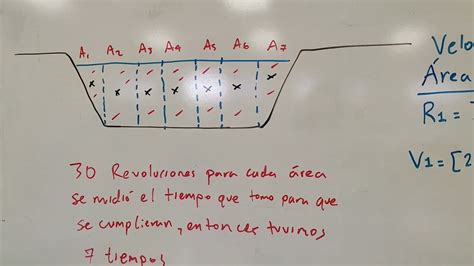 A1 A2 A3 A4 A5 A6 A7
Velo
Área
R1 =
V1 = [2
30 Revoluciones para cada área
se midió el tiempo que tomo para que
se cumplieran, entonces tuvimos
7 tiempos